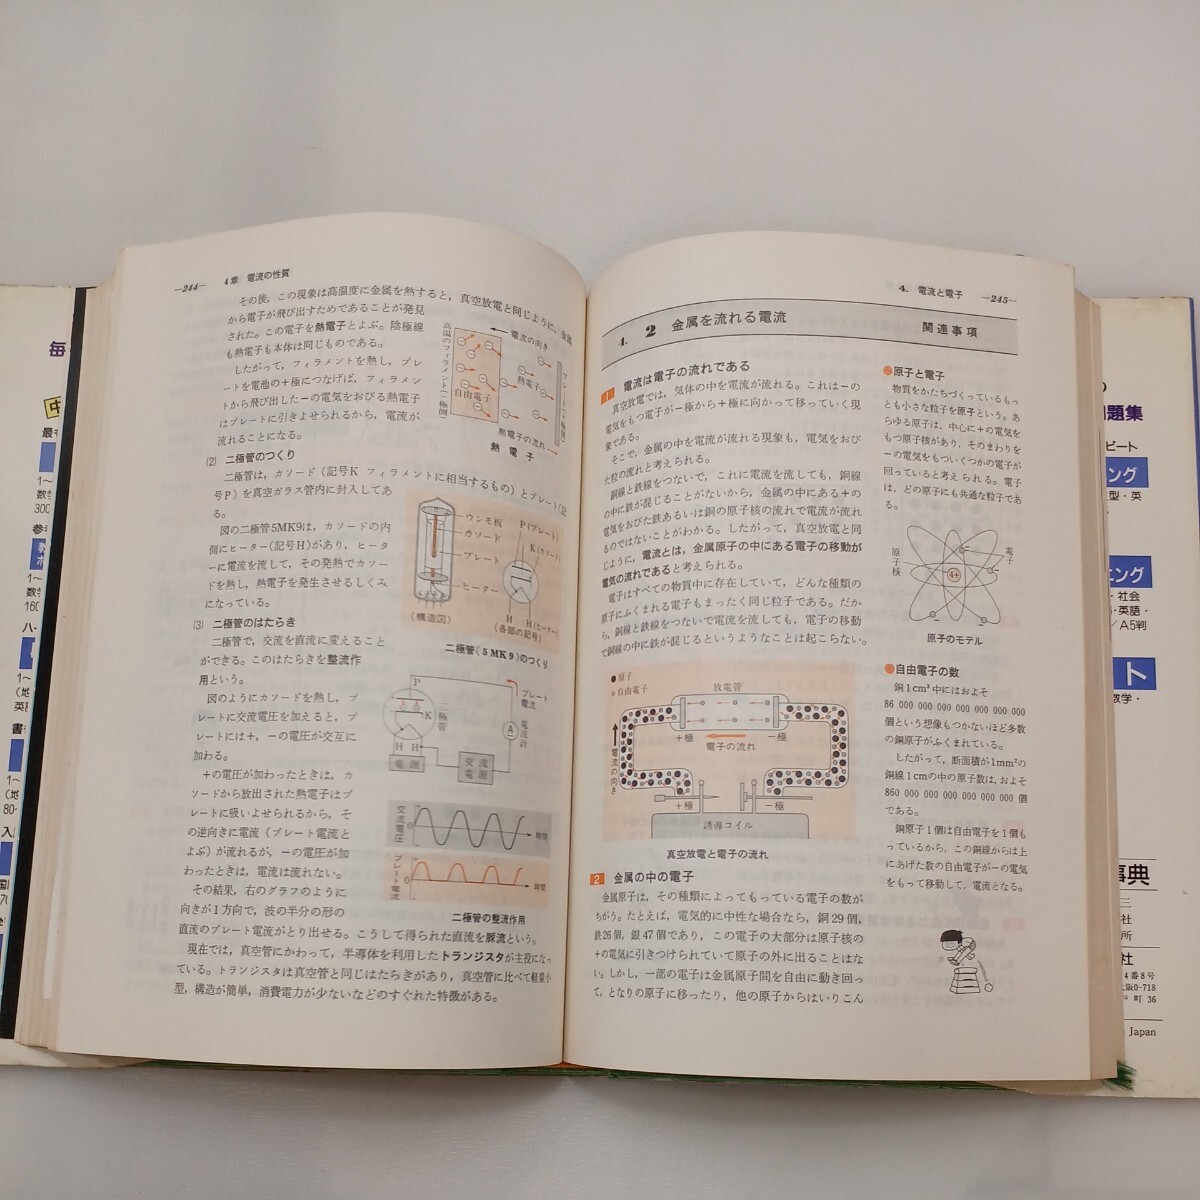 —244—　4章　電流の性質
その後，この現象は高温度に金属を熱すると，真空放電と同じように，金属
から電子が飛び出すためであることが発見
された。この電子を熱電子とよぶ。陰極線
も熱電子も本体は同じものである。
したがって，フィラメントを熱し，プレ
ートを電池の＋極につなげば，フィラメン
トから飛び出した－の電気をおびる熱電子
はプレートに引きよせられるから，電流が
流れることになる。
高温のフィラメント(－極側)
電流の向き
熱電子
自由電子
プレート(＋極側)
熱電子の流れ
熱電子
(2)　二極管のつくり
二極管は，カソード（記号K　フィラメントに相当するもの）とプレート（記
号P）を真空ガラス管内に封入してあ
る。
図の二極管5MK9は，カソードの内
側にヒーター(記号H)があり，ヒータ
ーに電流を流して，その発熱でカソー
ドを熱し，熱電子を発生させるしくみ
になっている。
ウンモ板
カソード
プレート
ヒーター
(構造図)
P(プレート)
K(カソード)
H H(ヒーター)
(各部の記号)
二極管(5MK9)のつくり
(3)　二極管のはたらき
二極管で，交流を直流に変えること
ができる。このはたらきを整流作
用という。
図のようにカソードを熱し，プ
レートに交流電圧を加えると，プ
レートには＋，－の電圧が交互に
加わる。
＋の電圧が加わったときは，カ
ソードから放出された熱電子はプ
レートに吸いよせられるから，そ
の逆向きに電流（プレート電流と
よぶ）が流れるが，－の電圧が加
わったときは，電流は流れない。
その結果，右のグラフのように
向きが1方向で，波の半分の形の
直流のプレート電流がとり出せる。こうして得られた直流を脈流という。
P
K
H H
二極管
プレート電流
A
電流計
電源
交流電源
交流電圧
0
時間
プレート電流
0
時間
二極管の整流作用
現在では，真空管にかわって，半導体を利用したトランジスタが主役になっ
ている。トランジスタは真空管と同じはたらきがあり，真空管に比べて軽量小
型，構造が簡単，消費電力が少ないなどのすぐれた特徴がある。
4．電流と電子　—245—
4．2　金属を流れる電流　関連事項
1　電流は電子の流れである
真空放電では，気体の中を電流が流れる。これは－の
電気をもつ電子が－極から＋極に向かって移っていく現
象である。
そこで，金属の中を電流が流れる現象も，電気をおび
た粒の流れと考えられる。
銅線と鉄線をつないで，これに電流を流しても，銅線
の中に鉄が混じることがないから，金属の中にある＋の
電気をおびた鉄あるいは銅の原子核の流れで電流が流れ
るのではないことがわかる。したがって，真空放電と同
じように，電流とは，金属原子の中にある電子の移動が
電気の流れであると考えられる。
電子はすべての物質中に存在していて，どんな種類の
原子にふくまれる電子もまったく同じ粒子である。だか
ら，銅線と鉄線をつないで電流を流しても，電子の移動
で銅線の中に鉄が混じるというようなことは起こらない。
●原子
●自由電子
放電管
＋極
－極
電子の流れ
電流の向き
＋極
－極
誘導コイル
真空放電と電子の流れ
2　金属の中の電子
金属原子は，その種類によってもっている電子の数が
ちがう。たとえば，電気的に中性な場合なら，銅29個，
鉄26個，銀47個であり，この電子の大部分は原子核の
＋の電気に引きつけられていて原子の外に出ることはな
い。しかし，一部の電子は金属原子間を自由に動き回っ
て，となりの原子に移ったり，他の原子からはいりこん
●原子と電子
物質をかたちづくっているもっ
とも小さな粒子を原子という。あ
らゆる原子は，中心に＋の電気を
もつ原子核があり，そのまわりを
－の電気をもついくつかの電子が
回っていると考えられる。電子
は，どの原子にも共通な粒子であ
る。
原子核
電子
4+
原子のモデル
●自由電子の数
銅1cm³中にはおよそ
86 000 000 000 000 000 000 000
個という想像もつかないほど多数
の銅原子がふくまれている。
したがって，断面積が1mm²の
銅線1cmの中の原子数は，およそ
860 000 000 000 000 000 000 個
である。
銅原子1個は自由電子を1個も
っているから，この銅線からは上
にあげた数の自由電子が－の電気
をもって移動して，電流となる。
題集
ング
型・英
ニング
・社会
・英語・
／A5判
ト
数学・
事典
三
社
所
社
4番8号
大阪0-718
戸町 36
Japan